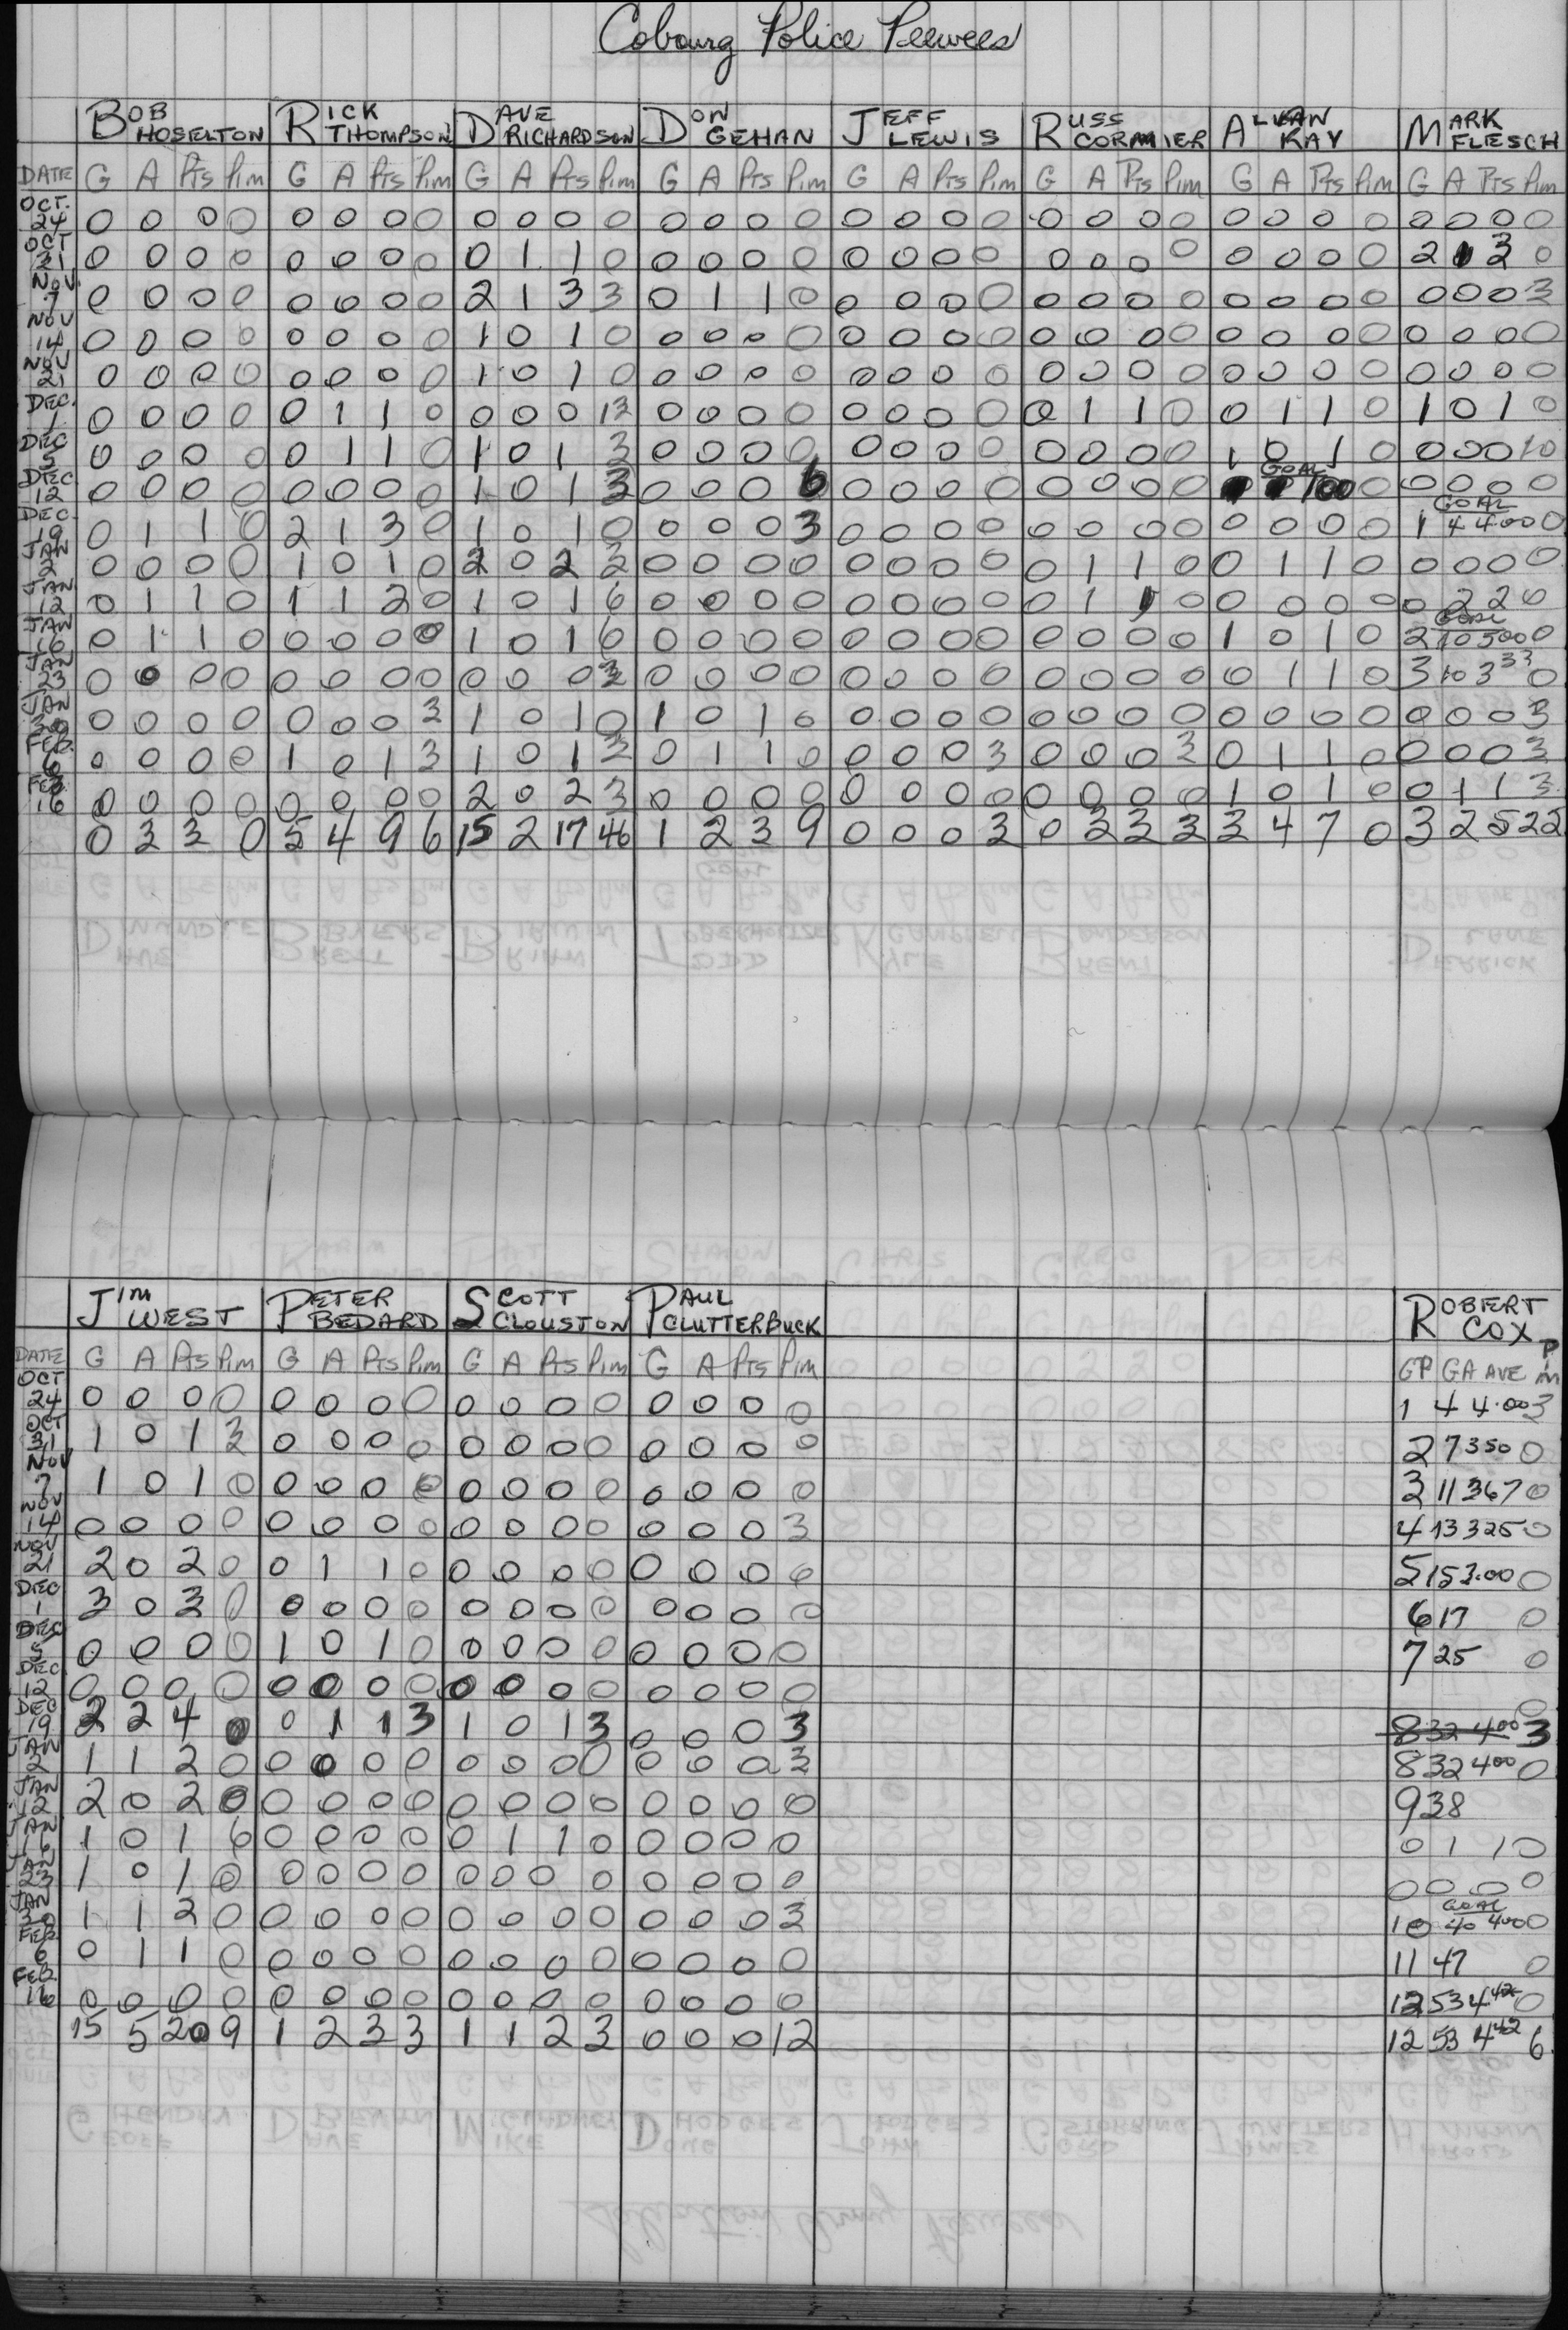 Cobourg Police Peewees
BOB HOSELTON RICK THOMPSON DAVE RICHARDSON DON GEHAN JEFF LEWIS RUSS CORMIER ALVAN KAY MARK FLESCH
DATE G A Pts Pim G A Pts Pim G A Pts Pim G A Pts Pim G A Pts Pim G A Pts Pim G A Pts Pim G A Pts Pim
OCT. 24 0 0 0 0 0 0 0 0 0 0 0 0 0 0 0 0 0 0 0 0 0 0 0 0 0 0 0 0 0 0 0 0
OCT 31 0 0 0 0 0 0 0 0 0 1 1 0 0 0 0 0 0 0 0 0 0 0 0 0 0 0 0 0 2 1 3 0
NOV. 7 0 0 0 0 0 0 0 0 2 1 3 3 0 1 1 0 0 0 0 0 0 0 0 0 0 0 0 0 0 0 0 3
NOV 14 0 0 0 0 0 0 0 0 1 0 1 0 0 0 0 0 0 0 0 0 0 0 0 0 0 0 0 0 0 0 0 0
NOV 21 0 0 0 0 0 0 0 0 1 0 1 0 0 0 0 0 0 0 0 0 0 0 0 0 0 0 0 0 0 0 0 0
DEC. 1 0 0 0 0 0 1 1 0 0 0 0 13 0 0 0 0 0 0 0 0 0 1 1 0 0 1 1 0 1 0 1 0
DEC 5 0 0 0 0 0 1 1 0 1 0 1 3 0 0 0 0 0 0 0 0 0 0 0 0 1 0 1 0 0 0 0 10
DEC 12 0 0 0 0 0 0 0 0 1 0 1 3 0 0 0 6 0 0 0 0 0 0 0 0 GOAL 100 0 0 0 0 0
DEC. 19 0 1 1 0 2 1 3 0 1 0 1 0 0 0 0 3 0 0 0 0 0 0 0 0 0 0 0 0 GOAL 1 4 4.00 0
JAN 2 0 0 0 0 1 0 1 0 2 0 2 3 0 0 0 0 0 0 0 0 0 1 1 0 0 1 1 0 0 0 0 0
JAN 12 0 1 1 0 1 1 2 0 1 0 1 6 0 0 0 0 0 0 0 0 0 1 1 0 0 0 0 0 0 2 2 0
JAN 16 0 1 1 0 0 0 0 0 1 0 1 6 0 0 0 0 0 0 0 0 0 0 0 0 1 0 1 0 GOAL 2 10 500 0
JAN 23 0 0 0 0 0 0 0 0 0 0 0 3 0 0 0 0 0 0 0 0 0 0 0 0 0 1 1 0 3 10 333 0
JAN 30 0 0 0 0 0 0 0 3 1 0 1 0 1 0 1 0 0 0 0 0 0 0 0 0 0 0 0 0 0 0 0 3
FEB. 6 0 0 0 0 1 0 1 3 1 0 1 3 0 1 1 0 0 0 0 3 0 0 0 3 0 1 1 0 0 0 0 3
FEB 16 0 0 0 0 0 0 0 0 2 0 2 3 0 0 0 0 0 0 0 0 0 0 0 0 1 0 1 0 0 1 1 3
0 3 3 0 5 4 9 6 15 2 17 46 1 2 3 9 0 0 0 3 0 3 3 3 3 4 7 0 3 2 5 22
JIM WEST PETER BEDARD SCOTT CLOUSTON PAUL CLUTTERBUCK ROBERT COX
DATE G A Pts Pim G A Pts Pim G A Pts Pim G A Pts Pim GP GA AVE Pim
OCT 24 0 0 0 0 0 0 0 0 0 0 0 0 0 0 0 0 1 4 4.00 3
OCT 31 1 0 1 3 0 0 0 0 0 0 0 0 0 0 0 0 2 7 350 0
NOV 7 1 0 1 0 0 0 0 0 0 0 0 0 0 0 0 0 3 11 367 0
NOV 14 0 0 0 0 0 0 0 0 0 0 0 0 0 0 0 3 4 13 325 0
NOV 21 2 0 2 0 0 1 1 0 0 0 0 0 0 0 0 0 5 15 3.00 0
DEC 1 3 0 3 0 0 0 0 0 0 0 0 0 0 0 0 0 6 17 0
DEC 5 0 0 0 0 1 0 1 0 0 0 0 0 0 0 0 0 7 25 0
DEC 12 0 0 0 0 0 0 0 0 0 0 0 0 0 0 0 0 0
DEC 19 2 2 4 0 0 1 1 3 1 0 1 3 0 0 0 3 8 32 400 3
JAN 2 1 1 2 0 0 0 0 0 0 0 0 0 0 0 0 3 8 32 400 0
JAN 12 2 0 2 0 0 0 0 0 0 0 0 0 0 0 0 0 9 38
JAN 16 1 0 1 6 0 0 0 0 0 1 1 0 0 0 0 0 0 1 1 0
JAN 23 1 0 1 0 0 0 0 0 0 0 0 0 0 0 0 0 0 0 0 0
JAN 30 1 1 2 0 0 0 0 0 0 0 0 0 0 0 0 3 GOAL 10 40 400 0
FEB 6 0 1 1 0 0 0 0 0 0 0 0 0 0 0 0 0 11 47 0
FEB. 16 0 0 0 0 0 0 0 0 0 0 0 0 0 0 0 0 12 53 442 0
15 5 20 9 1 2 3 3 1 1 2 3 0 0 0 12 12 53 442 6